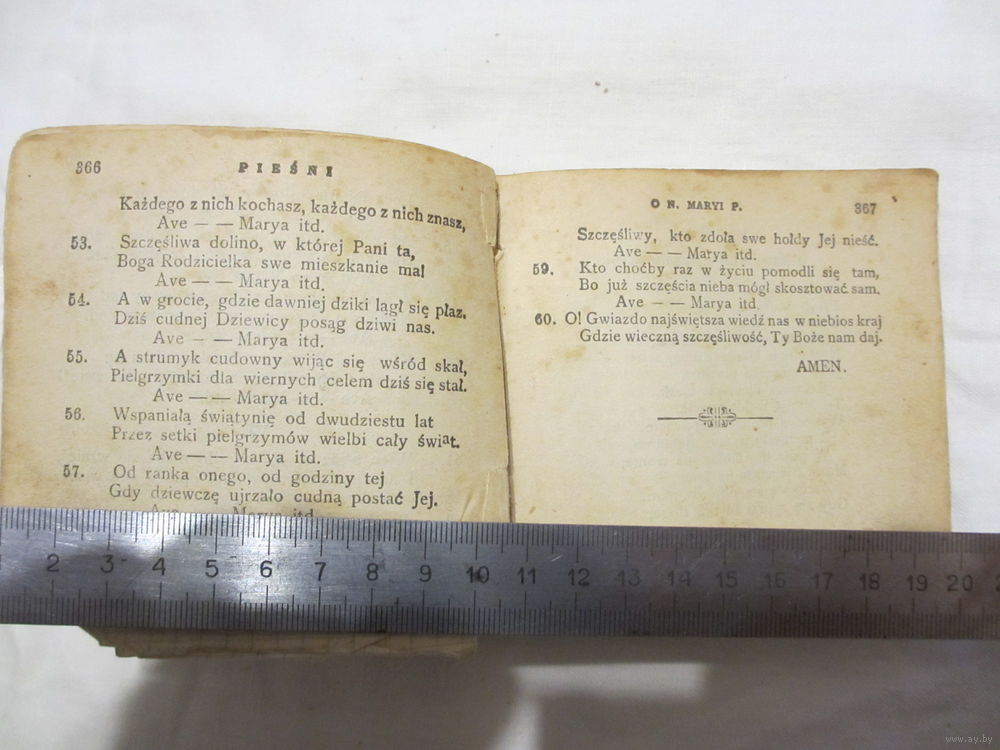 366
PIEŚNI
Każdego z nich kochasz, każdego z nich znasz,
Ave — — Marya itd.
53. Szczęśliwa dolino, w której Pani ta,
Boga Rodzicielka swe mieszkanie ma!
Ave — — Marya itd.
54. A w grocie, gdzie dawniej dziki lągł się płaz,
Dziś cudnej Dziewicy posąg dziwi nas.
Ave — — Marya itd.
55. A strumyk cudowny wijąc się wśród skał,
Pielgrzymki dla wiernych celem dziś się stał.
Ave — — Marya itd.
56. Wspaniałą świątynię od dwudziestu lat
Przez setki pielgrzymów wielbi cały świat.
Ave — — Marya itd.
57. Od ranka onego, od godziny tej
Gdy dziewczę ujrzało cudną postać Jej.
Ave — — Marya itd.
O N. MARYI P.
367
Szczęśliwy, kto zdoła swe hołdy Jej nieść.
Ave — — Marya itd.
59. Kto choćby raz w życiu pomodli się tam,
Bo już szczęścia nieba mógł skosztować sam.
Ave — — Marya itd
60. O! Gwiazdo najświętsza wiedź nas w niebios kraj
Gdzie wieczną szczęśliwość, Ty Boże nam daj.
AMEN.
2 3 4 5 6 7 8 9 10 11 12 13 14 15 16 17 18 19 20
www.ay.by